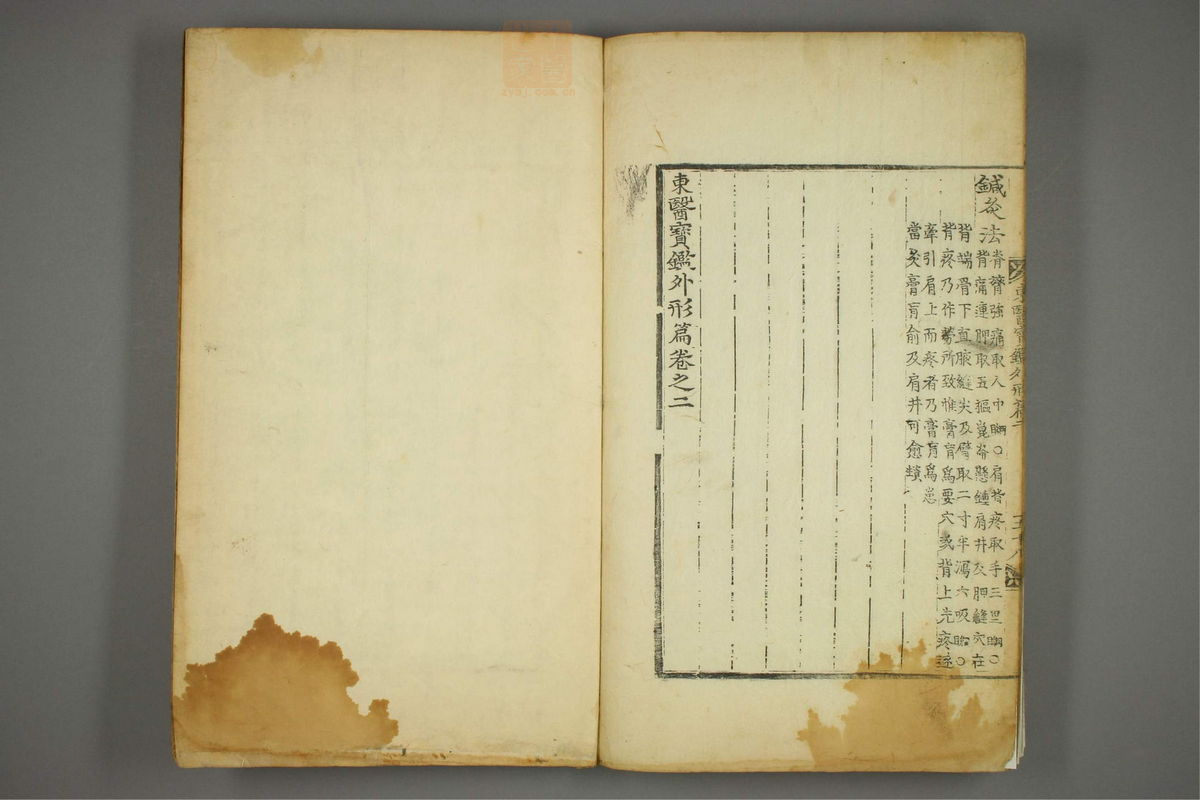 zysj.com.cn
東醫寶鑑外形篇二 五十八
鍼灸法
脊膂強痛取人中綱○肩背疼取手三里綱○
背痛連胛取五樞崑崙懸鍾肩井及胛縫穴在
背端骨下直腋縫尖及臂取二寸半瀉六吸綱○
背疼乃作勞所致惟膏肓爲要穴或背上先疼遂
牽引肩上而疼者乃膏肓爲患
當灸膏肓俞及肩井可愈類
東醫寶鑑外形篇卷之二